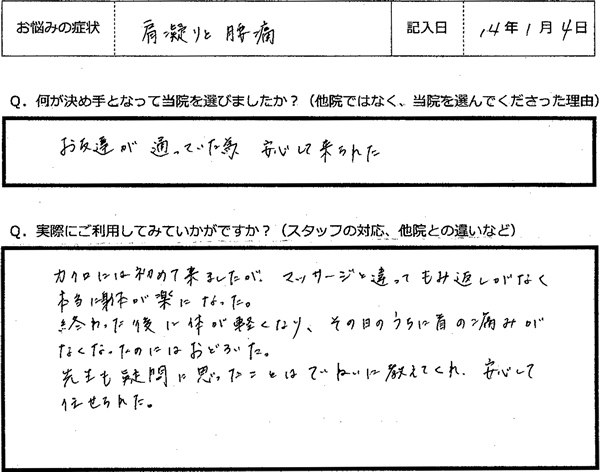 お悩みの症状 肩凝りと腰痛 記入日 14年1月4日
Q．何が決め手となって当院を選びましたか？（他院ではなく、当院を選んでくださった理由）
お友達が通っていた為 安心して来られた
Q．実際にご利用してみていかがですか？（スタッフの対応、他院との違いなど）
カイロには初めて来ましたが、マッサージと違ってもみ返しがなく
本当に身体が楽になった。
終わった後に体が軽くなり、その日のうちに首の痛みが
なくなったのにはおどろいた。
先生も疑問に思ったことはていねいに教えてくれ、安心して
任せられた。